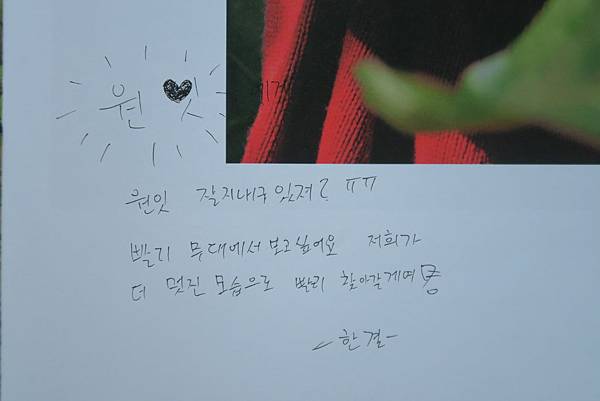 원 ♥ 잇에게
원잇 잘지내구 있져? ㅠㅠ
빨리 무대에서 보고싶어요 저희가
더 멋진 모습으로 빨리 찾아갈게여
-한결-